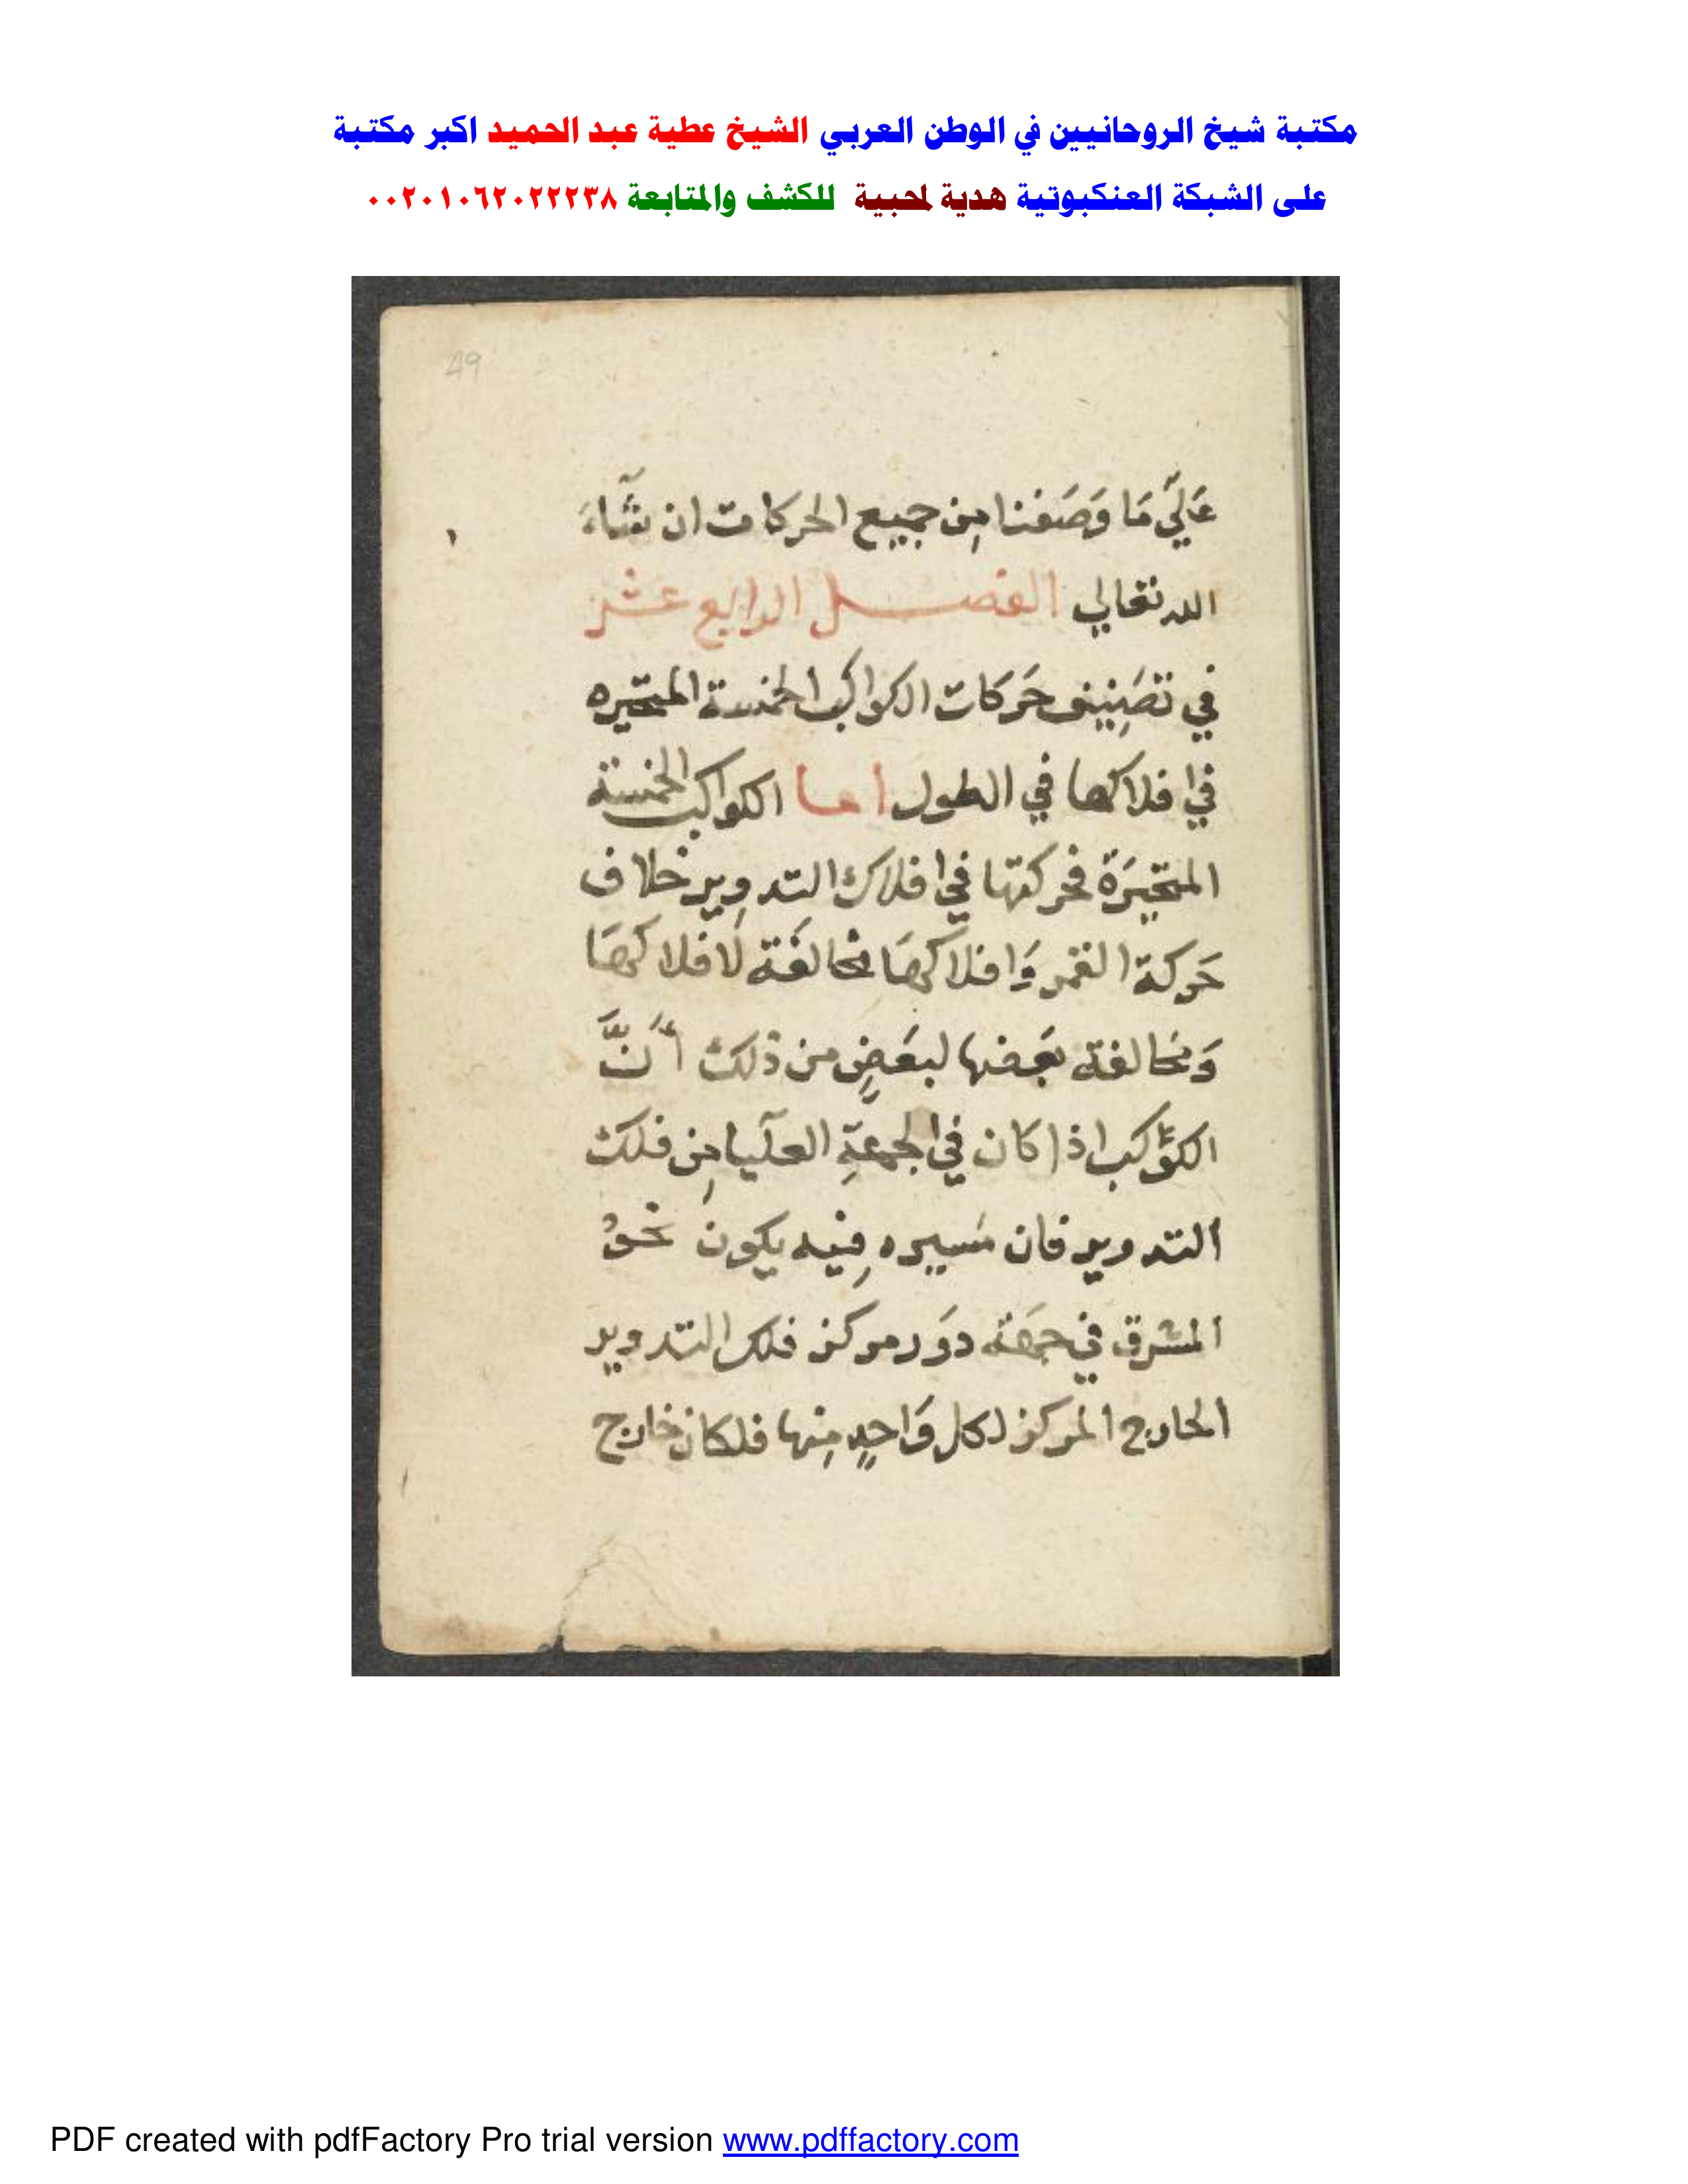 مكتبة شيخ الروحانيين في الوطن العربي الشيخ عطية عبد الحميد اكبر مكتبة
على الشبكة العنكبوتية هدية لمحبية للكشف والمتابعة ٠٠٢٠١٠٦٢٠٢٢٢٣٨
49
عَلَيّ مَا وَصَفنا مِن جميع الحركات ان شَآءَ
الله تعالي الفصل الرابع عشر
في تصَنِيف حَركات الكواكب الخمسة المتحيره
في افلاكها في الطول اما الكواكب الخمسة
المتحيرَة فحركتها في افلاك التدوِير خلاف
حَركة القمر وَافلاكهَا مخالفَة لَافلاكهَا
وَمخَالفة بعَضها لبعَضٍ من ذلك أَنَّ
الكوَكب اذا كان في الجهةِ العلَيا مِن فلك
التدوير فان مَسيره فِيه يكون نحوُ
المشرق في جهَة دوَر مركز فلك التدوير
الخارج المركز لكل وَاحِدٍ مِنها فلكان خارج
PDF created with pdfFactory Pro trial version www.pdffactory.com